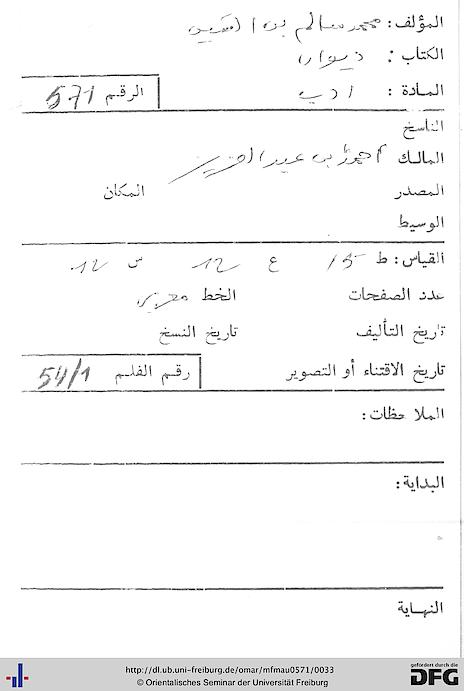 المؤلف: محمد سالم بن
الكتاب: ديوان
المادة: ادب
الرقم 571
الناسخ
المالك احمد بن عبد العزيز
المصدر المكان
الوسيط
القياس: ط 15 ع 12 س 12
عدد الصفحات الخط مغربي
تاريخ التأليف تاريخ النسخ
تاريخ الاقتناء أو التصوير رقم الفلم 54/1
الملاحظات:
البداية:
النهاية
http://dl.ub.uni-freiburg.de/omar/mfmau0571/0033
© Orientalisches Seminar der Universität Freiburg
gefördert durch die
DFG